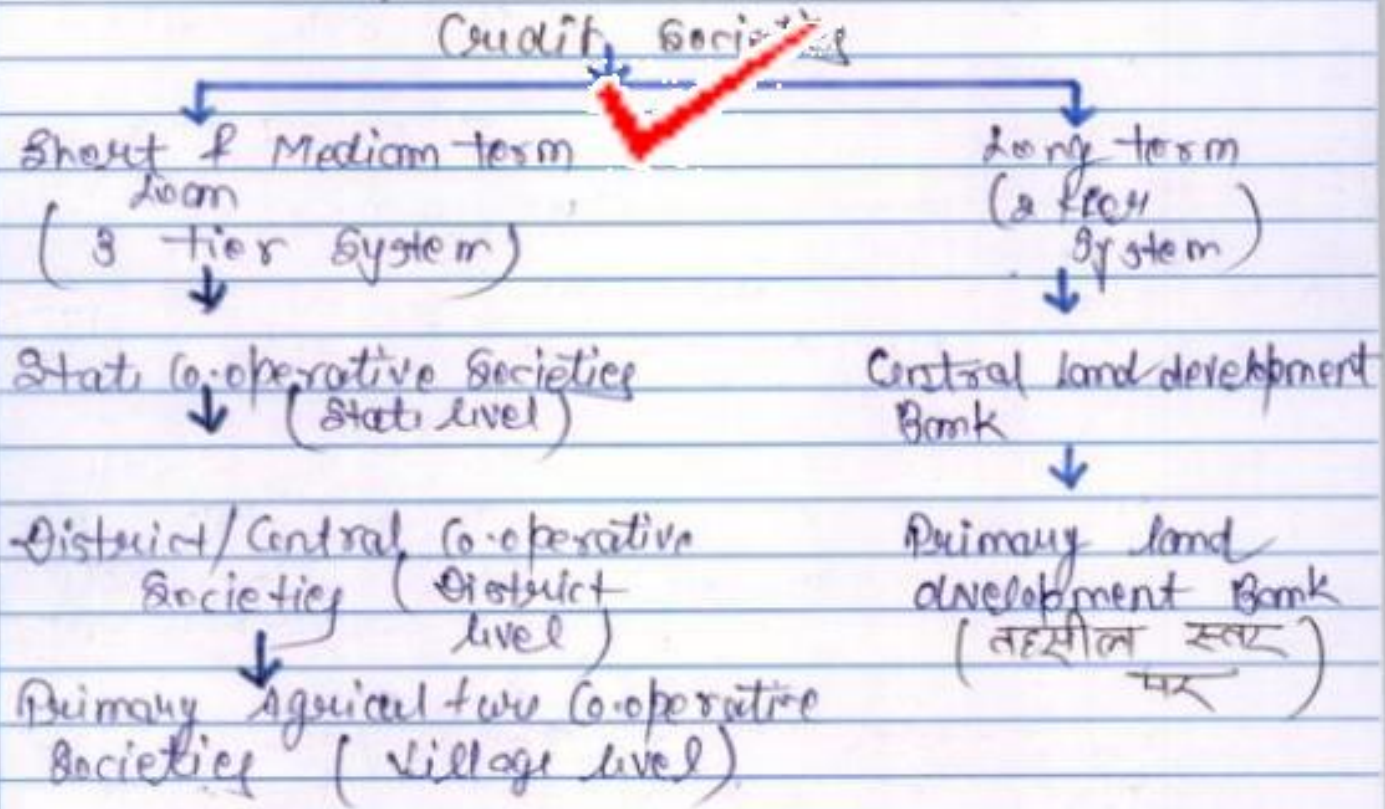 Credit Societies
Short & Medium term
Loan
(3 tier System)
State Co-operative Societies
(State level)
District/Central Co-operative
Societies (District
level)
Primary Agriculture Co-operative
Societies (Village level)
Long term
(2 tier
System)
Central land development
Bank
Primary land
development Bank
(तहसील स्तर
पर)